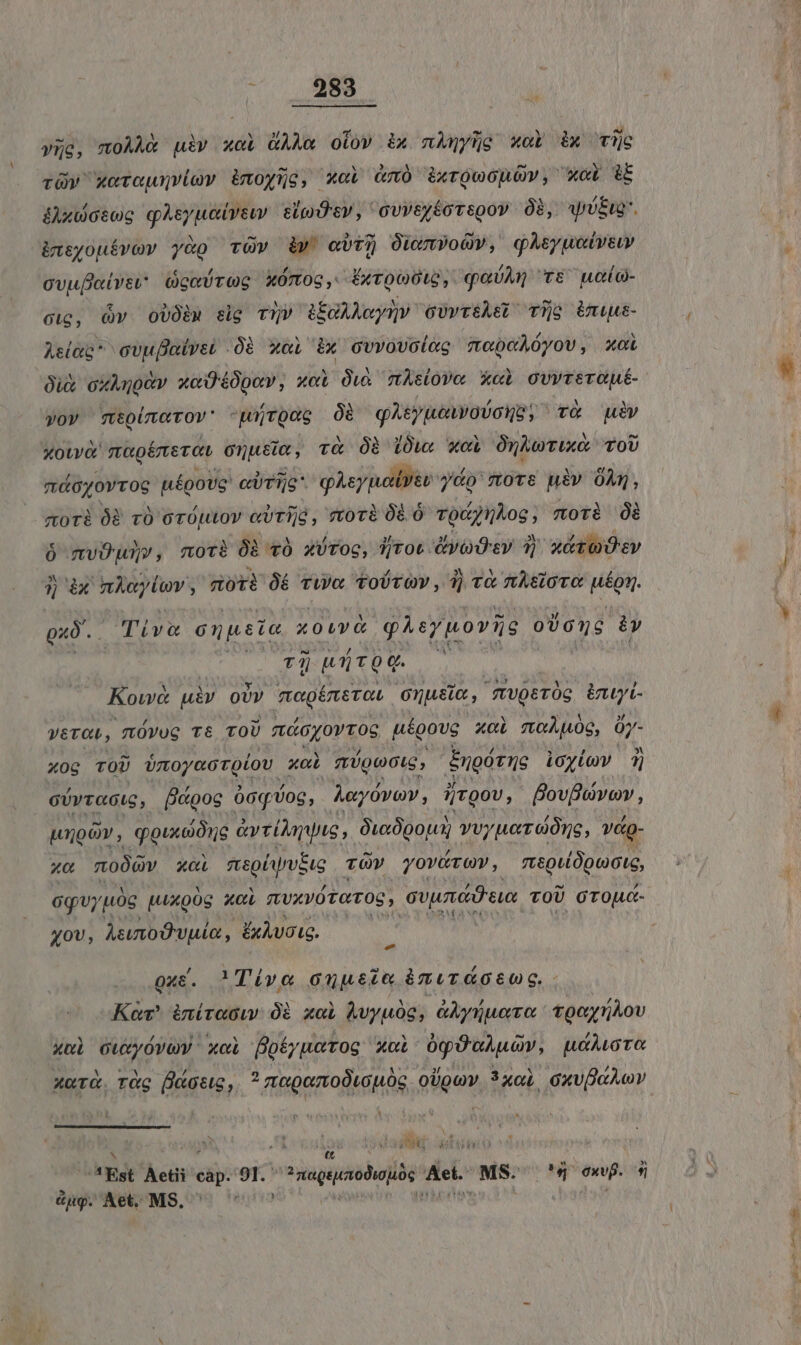 283
νῆς, πολλὰ μὲν καὶ ἄλλα οἷον ἐκ πληγῆς καὶ ἐκ τῆς
τῶν καταμηνίων ἐποχῆς, καὶ ἀπὸ ἐκτρωσμῶν, καὶ ἐξ
ἑλκώσεως φλεγμαίνειν εἴωθεν, συνεχέστερον δὲ, ψύξις·
ἐπεχομένων γὰρ τῶν ἐν αὐτῇ διαπνοῶν, φλεγμαίνειν
συμβαίνει· ὡςαύτως κόπος, ἔκτρωσις, φαύλη τε μαίω-
σις, ὧν οὐδὲν εἰς τὴν ἐξαλλαγὴν συντελεῖ τῆς ἐπιμε-
λείας· συμβαίνει δὲ καὶ ἐκ συνουσίας παραλόγου, καὶ
διὰ σκληρὰν καθέδραν, καὶ διὰ πλείονα καὶ συντεταμέ-
νον περίπατον· μήτρας δὲ φλεγμαινούσης, τὰ μὲν
κοινὰ παρέπεται σημεῖα, τὰ δὲ ἴδια καὶ δηλωτικὰ τοῦ
πάσχοντος μέρους αὐτῆς· φλεγμαίνει γάρ ποτε μὲν ὅλη,
ποτὲ δὲ τὸ στόμιον αὐτῆς, ποτὲ δὲ ὁ τράχηλος, ποτὲ δὲ
ὁ πυθμὴν, ποτὲ δὲ τὸ κύτος, ἤτοι ἄνωθεν ἢ κάτωθεν
ἢ ἐκ πλαγίων, ποτὲ δέ τινα τούτων, ἢ τὰ πλεῖστα μέρη.
ρκδ΄. Τίνα σημεῖα κοινὰ φλεγμονῆς οὔσης ἐν
τῇ μήτρᾳ.
Κοινὰ μὲν οὖν παρέπεται σημεῖα, πυρετὸς ἐπιγί-
νεται, πόνυς τε τοῦ πάσχοντος μέρους καὶ παλμὸς, ὄγ-
κος τοῦ ὑπογαστρίου καὶ πύρωσις, ξηρότης ἰσχίων ἢ
σύντασις, βάρος ὀσφύος, λαγόνων, ἤτρου, βουβώνων,
μηρῶν, φρικώδης ἀντίληψις, διαδρομὴ νυγματώδης, νάρ-
κα ποδῶν καὶ περίψυξις τῶν γονάτων, περιίδρωσις,
σφυγμὸς μικρὸς καὶ πυκνότατος, συμπάθεια τοῦ στομά-
χου, λειποθυμία, ἔκλυσις.
ρκέ. ¹Τίνα σημεῖα ἐπιτάσεως.
Κατ' ἐπίτασιν δὲ καὶ λυγμὸς, ἀλγήματα τραχήλου
καὶ σιαγόνων καὶ βρέγματος καὶ ὀφθαλμῶν, μάλιστα
κατὰ τὰς βάσεις, ²παραποδισμὸς οὔρων ³καὶ σκυβάλων
¹Est Aetii cap. 91. ²παρεμποδισμὸς Aet. MS. ³ἢ σκυβ. ἢ
ἄμφ. Aet. MS.